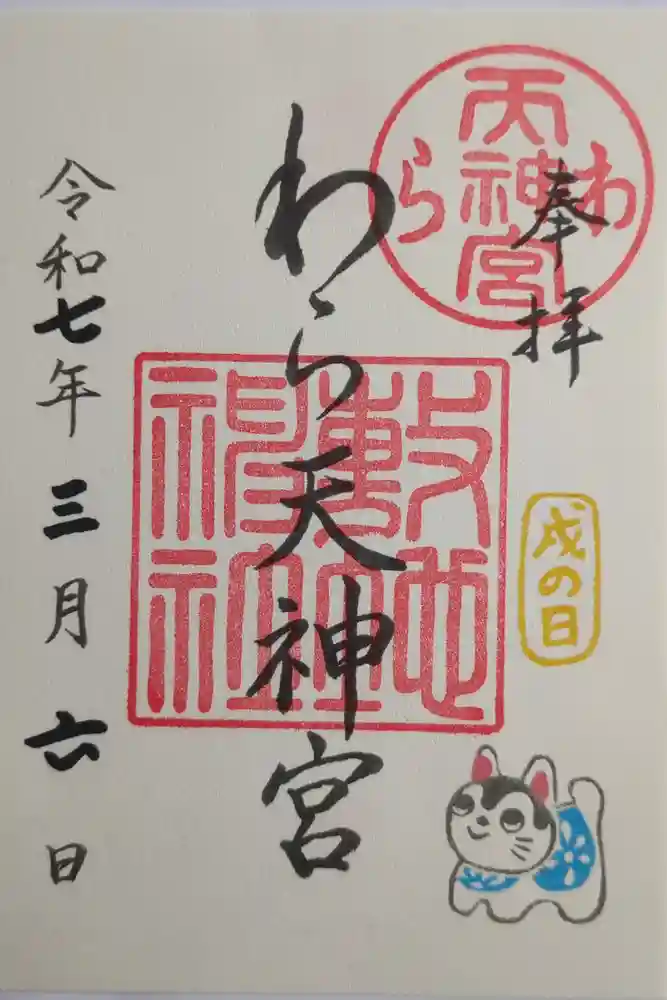 奉拝
わら
天神宮
戌の日
わら天神宮
敷地
神社
令和七年三月六日